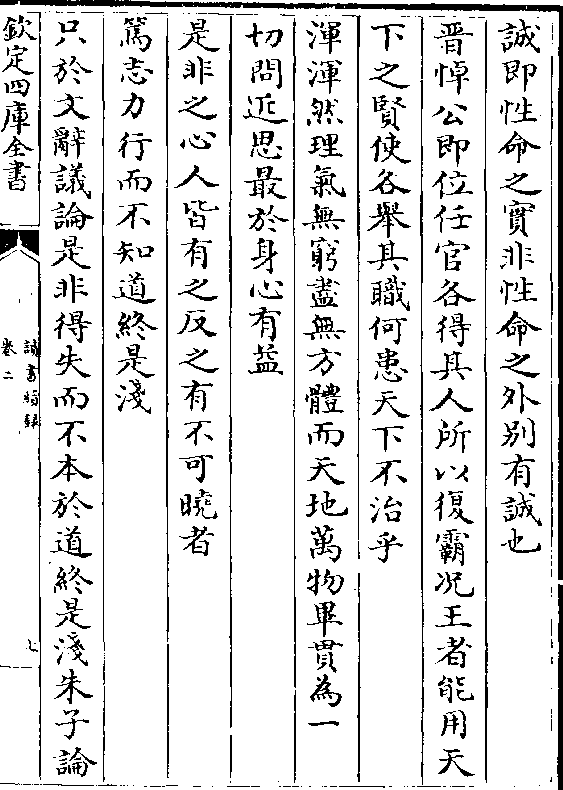 誠即性命之實非性命之外別有誠也
晋悼公即位任官各得其人所以復霸况王者能用天
下之賢使各舉其職何患天下不治乎
渾渾然理氣無窮盡無方體而天地萬物畢貫為一
切問近思最於身心有益
是非之心人皆有之反之有不可曉者
篤志力行而不知道終是淺
只於文辭議論是非得失而不本於道終是淺朱子論
欽定四庫全書
讀書續録
卷二
七